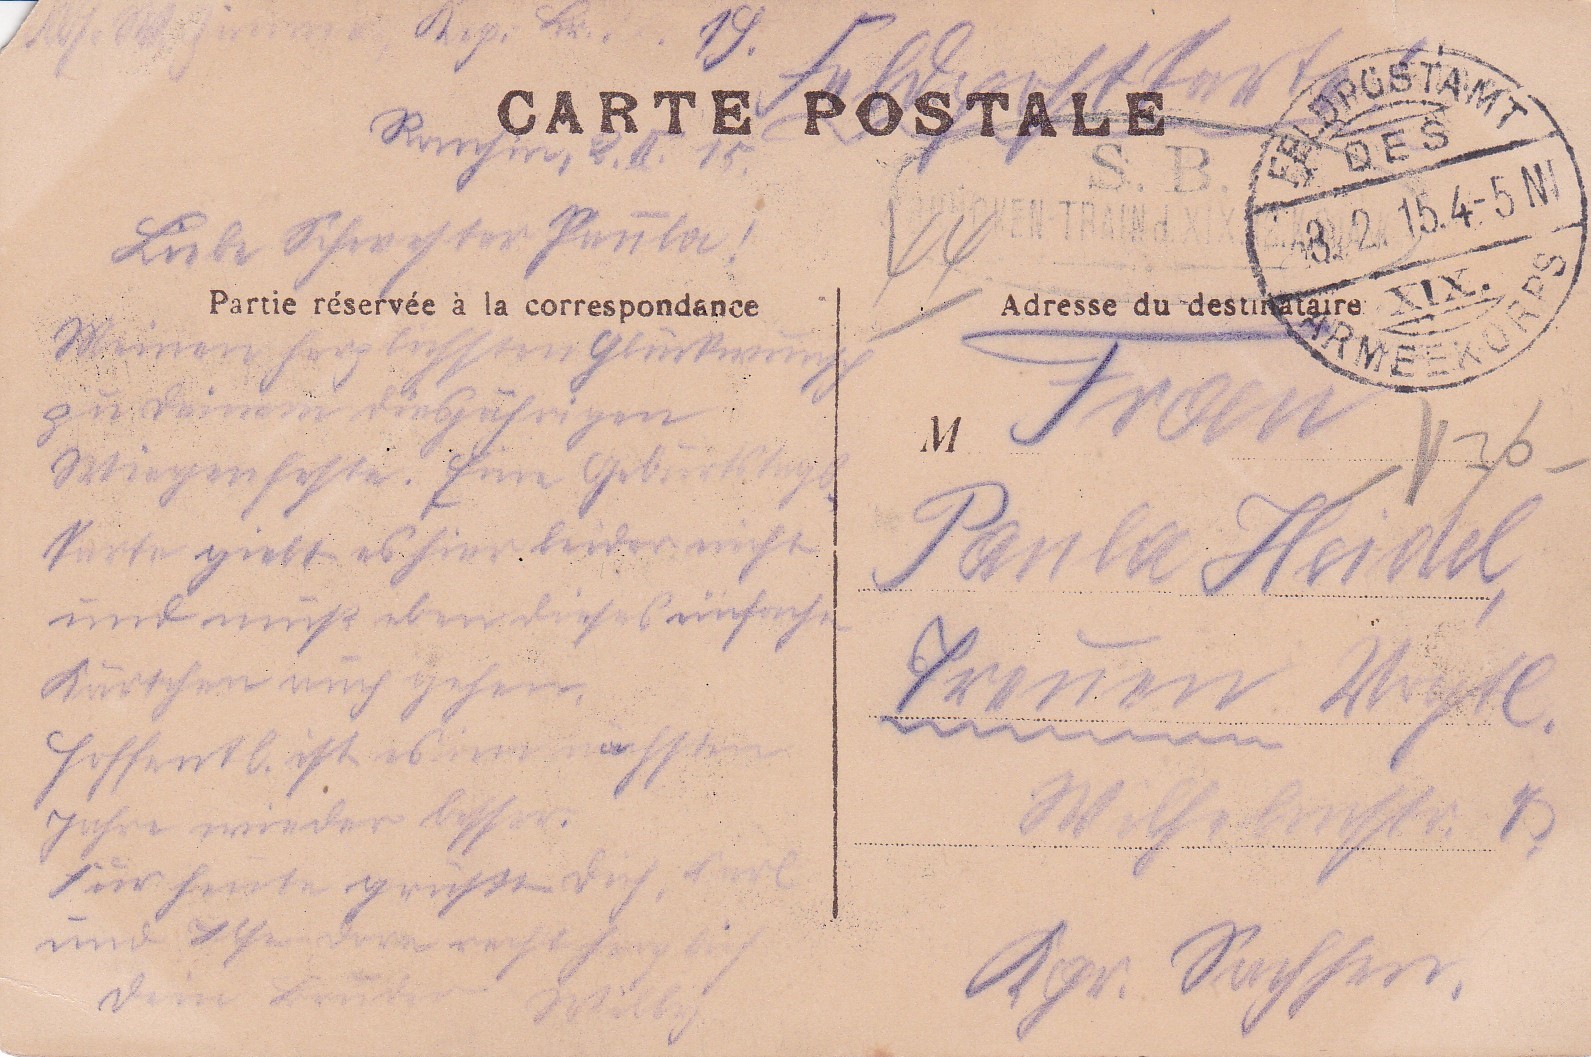 19.
Feldpostkarte
CARTE POSTALE
2.II.15.
S. B.
KOLONNEN-TRAIN d. XIX.
FELDPOSTAMT
DES
3. 2. 15. 4-5 N
XIX.
ARMEEKORPS
44
Liebe Schwester Paula!
Partie réservée à la correspondance
Adresse du destinataire
Meinen herzlichsten Glückwunsch
zu deinem diesjährigen
Wiegenfeste. Eine Geburtstags
karte giebt es hier leider nicht
und muß eben dieses einfache
Kärtchen auch gehen.
Hoffentl. ist es im nächsten
Jahre wieder besser.
Für heute grüßt Dich, Karl
und recht herzlich
Dein Bruder Willy
M
Frau
Paula Heidel,
Treuen Vogtl.
Wilhelmstr.
Kgr. Sachsen.